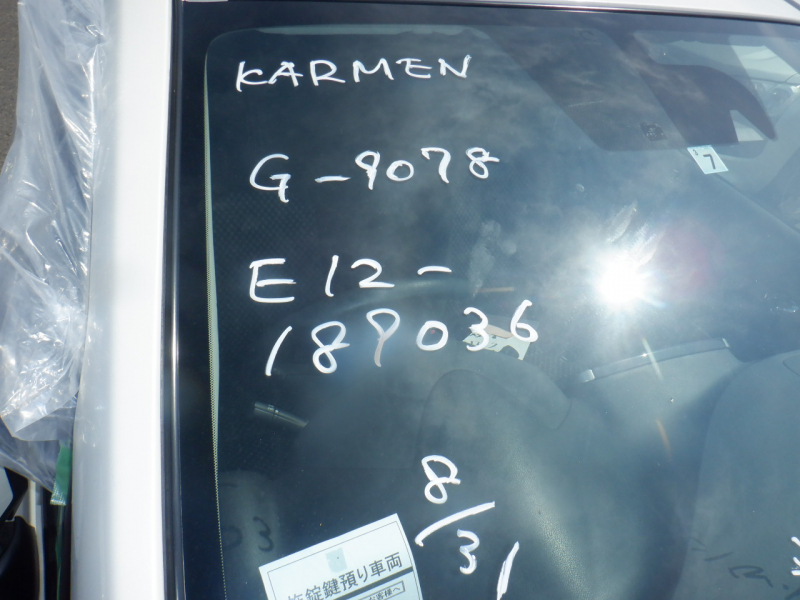 KARMEN
7
G-9078
E12-
189036
8/31
施錠鍵預り車両
お客様へ